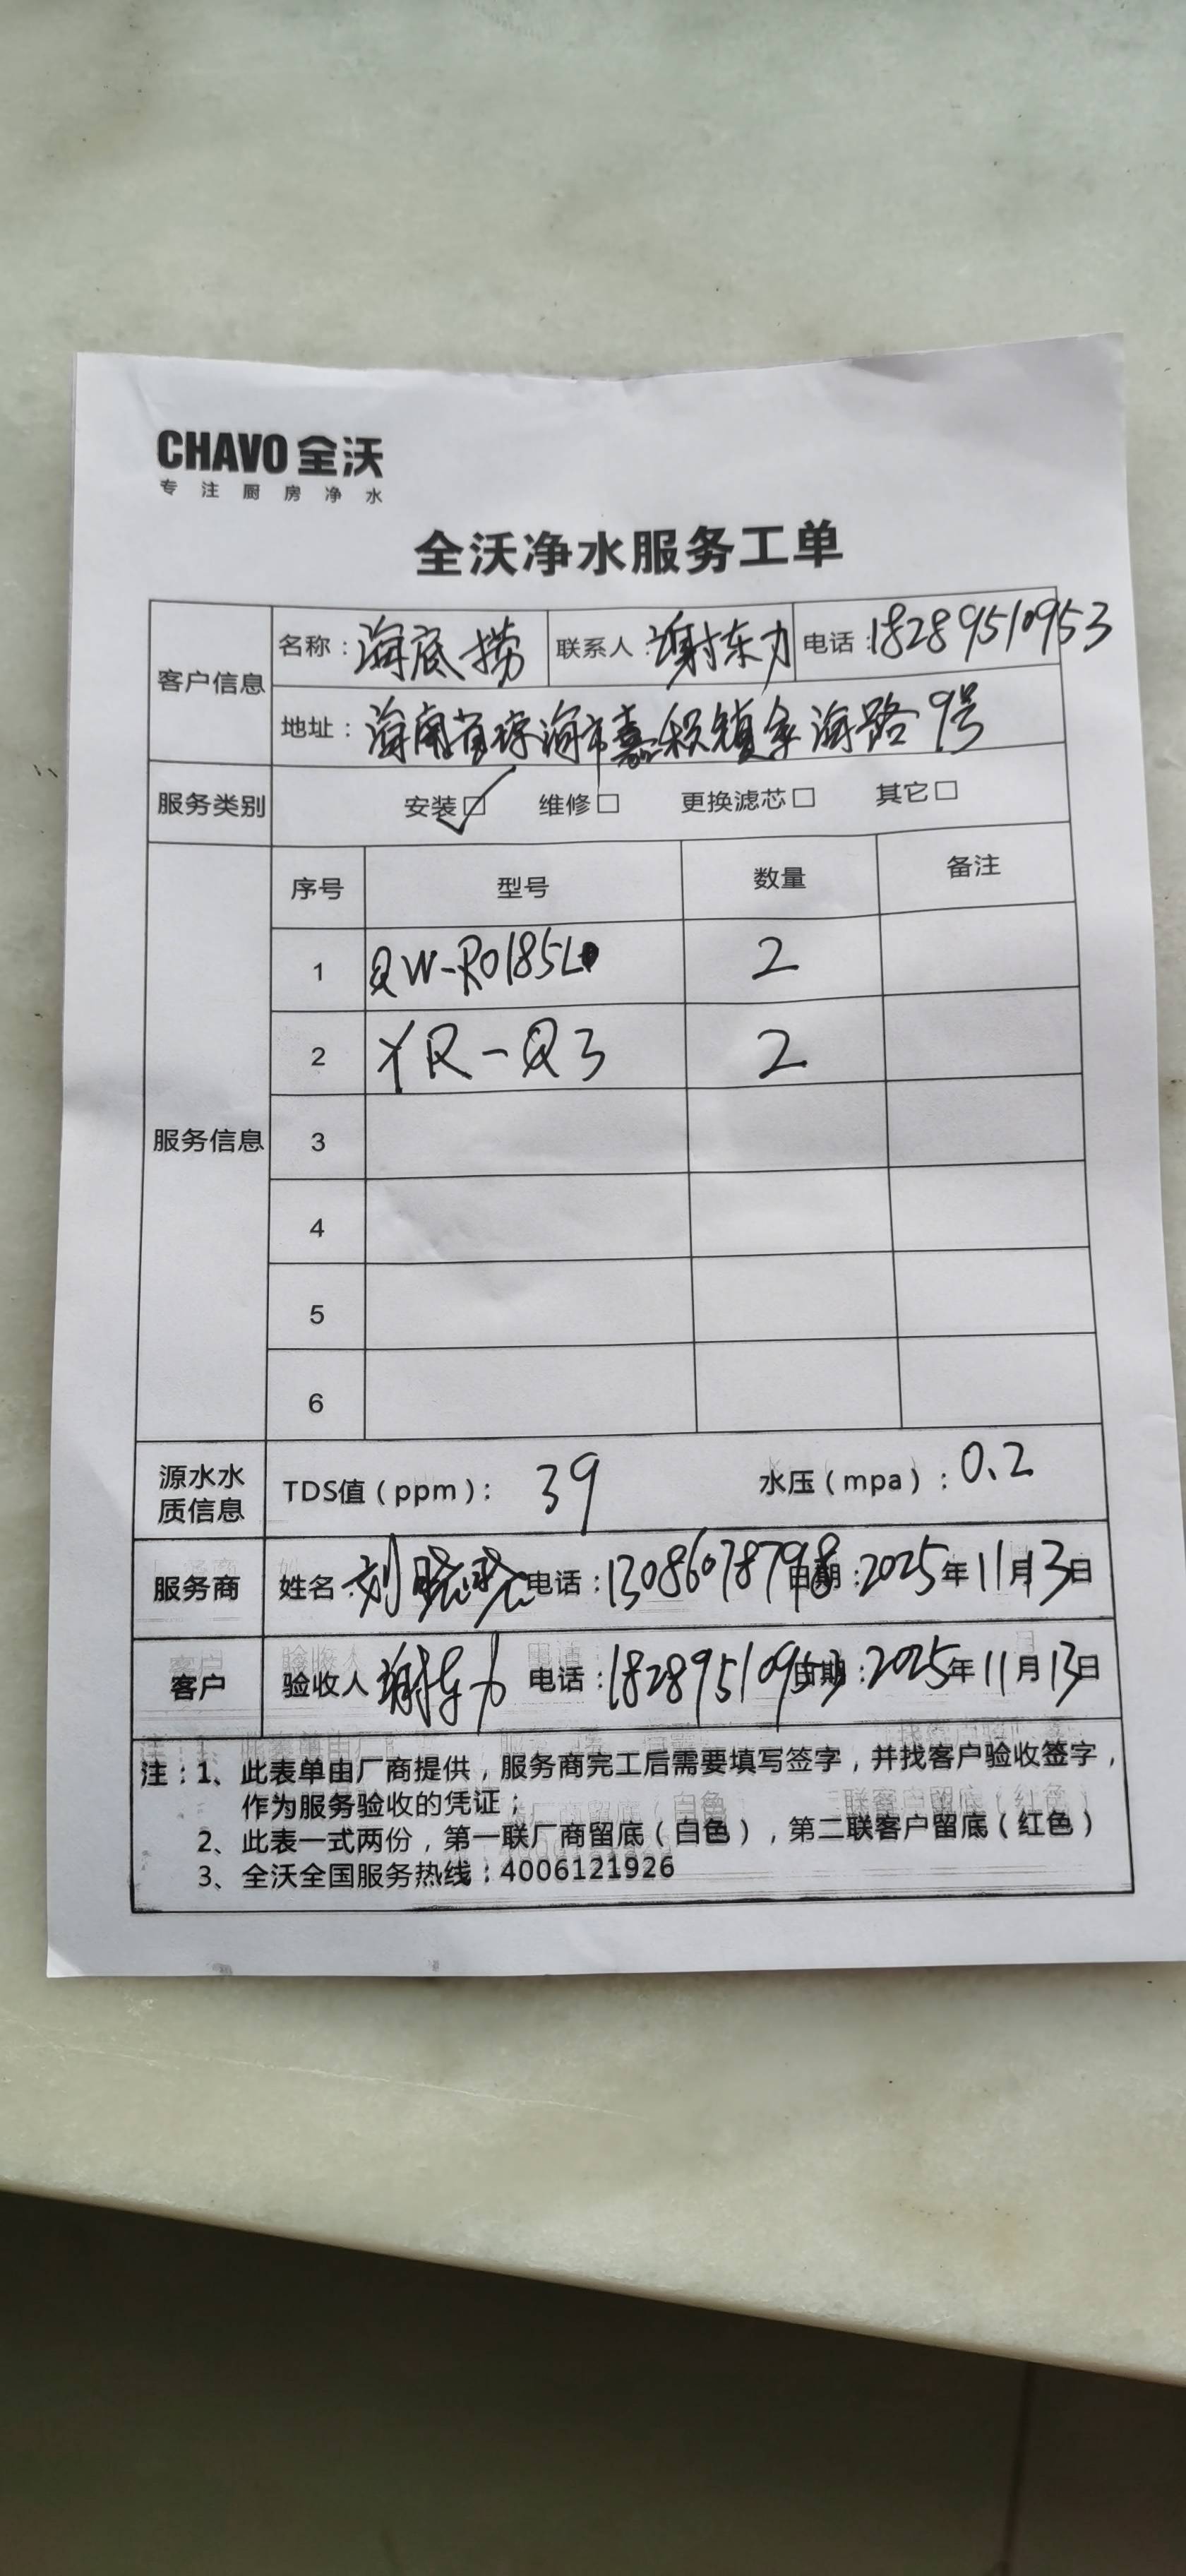 CHAVO 全沃
专注厨房净水
全沃净水服务工单
客户信息
名称：海底捞 联系人：谢东力 电话：18289510953
地址：海南省琼海市嘉积镇 海路9号
服务类别 安装☑ 维修□ 更换滤芯□ 其它□
服务信息
序号 型号 数量 备注
1 QW-R0185L 2
2 YR-Q3 2
3
4
5
6
源水水质信息 TDS值（ppm）：39 水压（mpa）：0.2
服务商 姓名：刘晓晓 电话：13086078798 日期：2025年11月13日
客户 验收人 谢东力 电话：18289510953 日期：2025年11月13日
注：1、此表单由厂商提供，服务商完工后需要填写签字，并找客户验收签字，
作为服务验收的凭证；
2、此表一式两份，第一联厂商留底（白色），第二联客户留底（红色）
3、全沃全国服务热线：4006121926